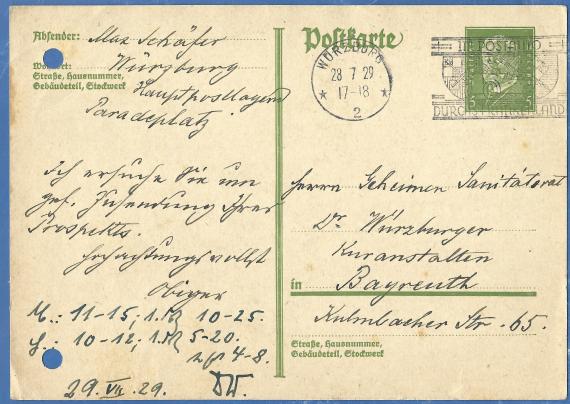 Absender: Max Schäfer
Postkarte
Wohnort: Würzburg
Straße, Hausnummer,
Gebäudeteil, Stockwerk
Hauptpostlagernd
Paradeplatz
WÜRZBURG
28 7 29
17-18
2
IM POSTAUTO
DURCHS FRANKENLAND
5 5
Ich ersuche Sie um
gef. Zusendung Ihres
Prospekts.
Hochachtungsvollst
Obiger
M.: 11-15; 1. 10-25.
10-12; 1. 5-20.
4-8.
29. VII. 29.
Herrn Geheimen Sanitätsrat
Dr. Würzburger
Kuranstalten
in Bayreuth
Kulmbacher Str. 65.
Straße, Hausnummer,
Gebäudeteil, Stockwerk